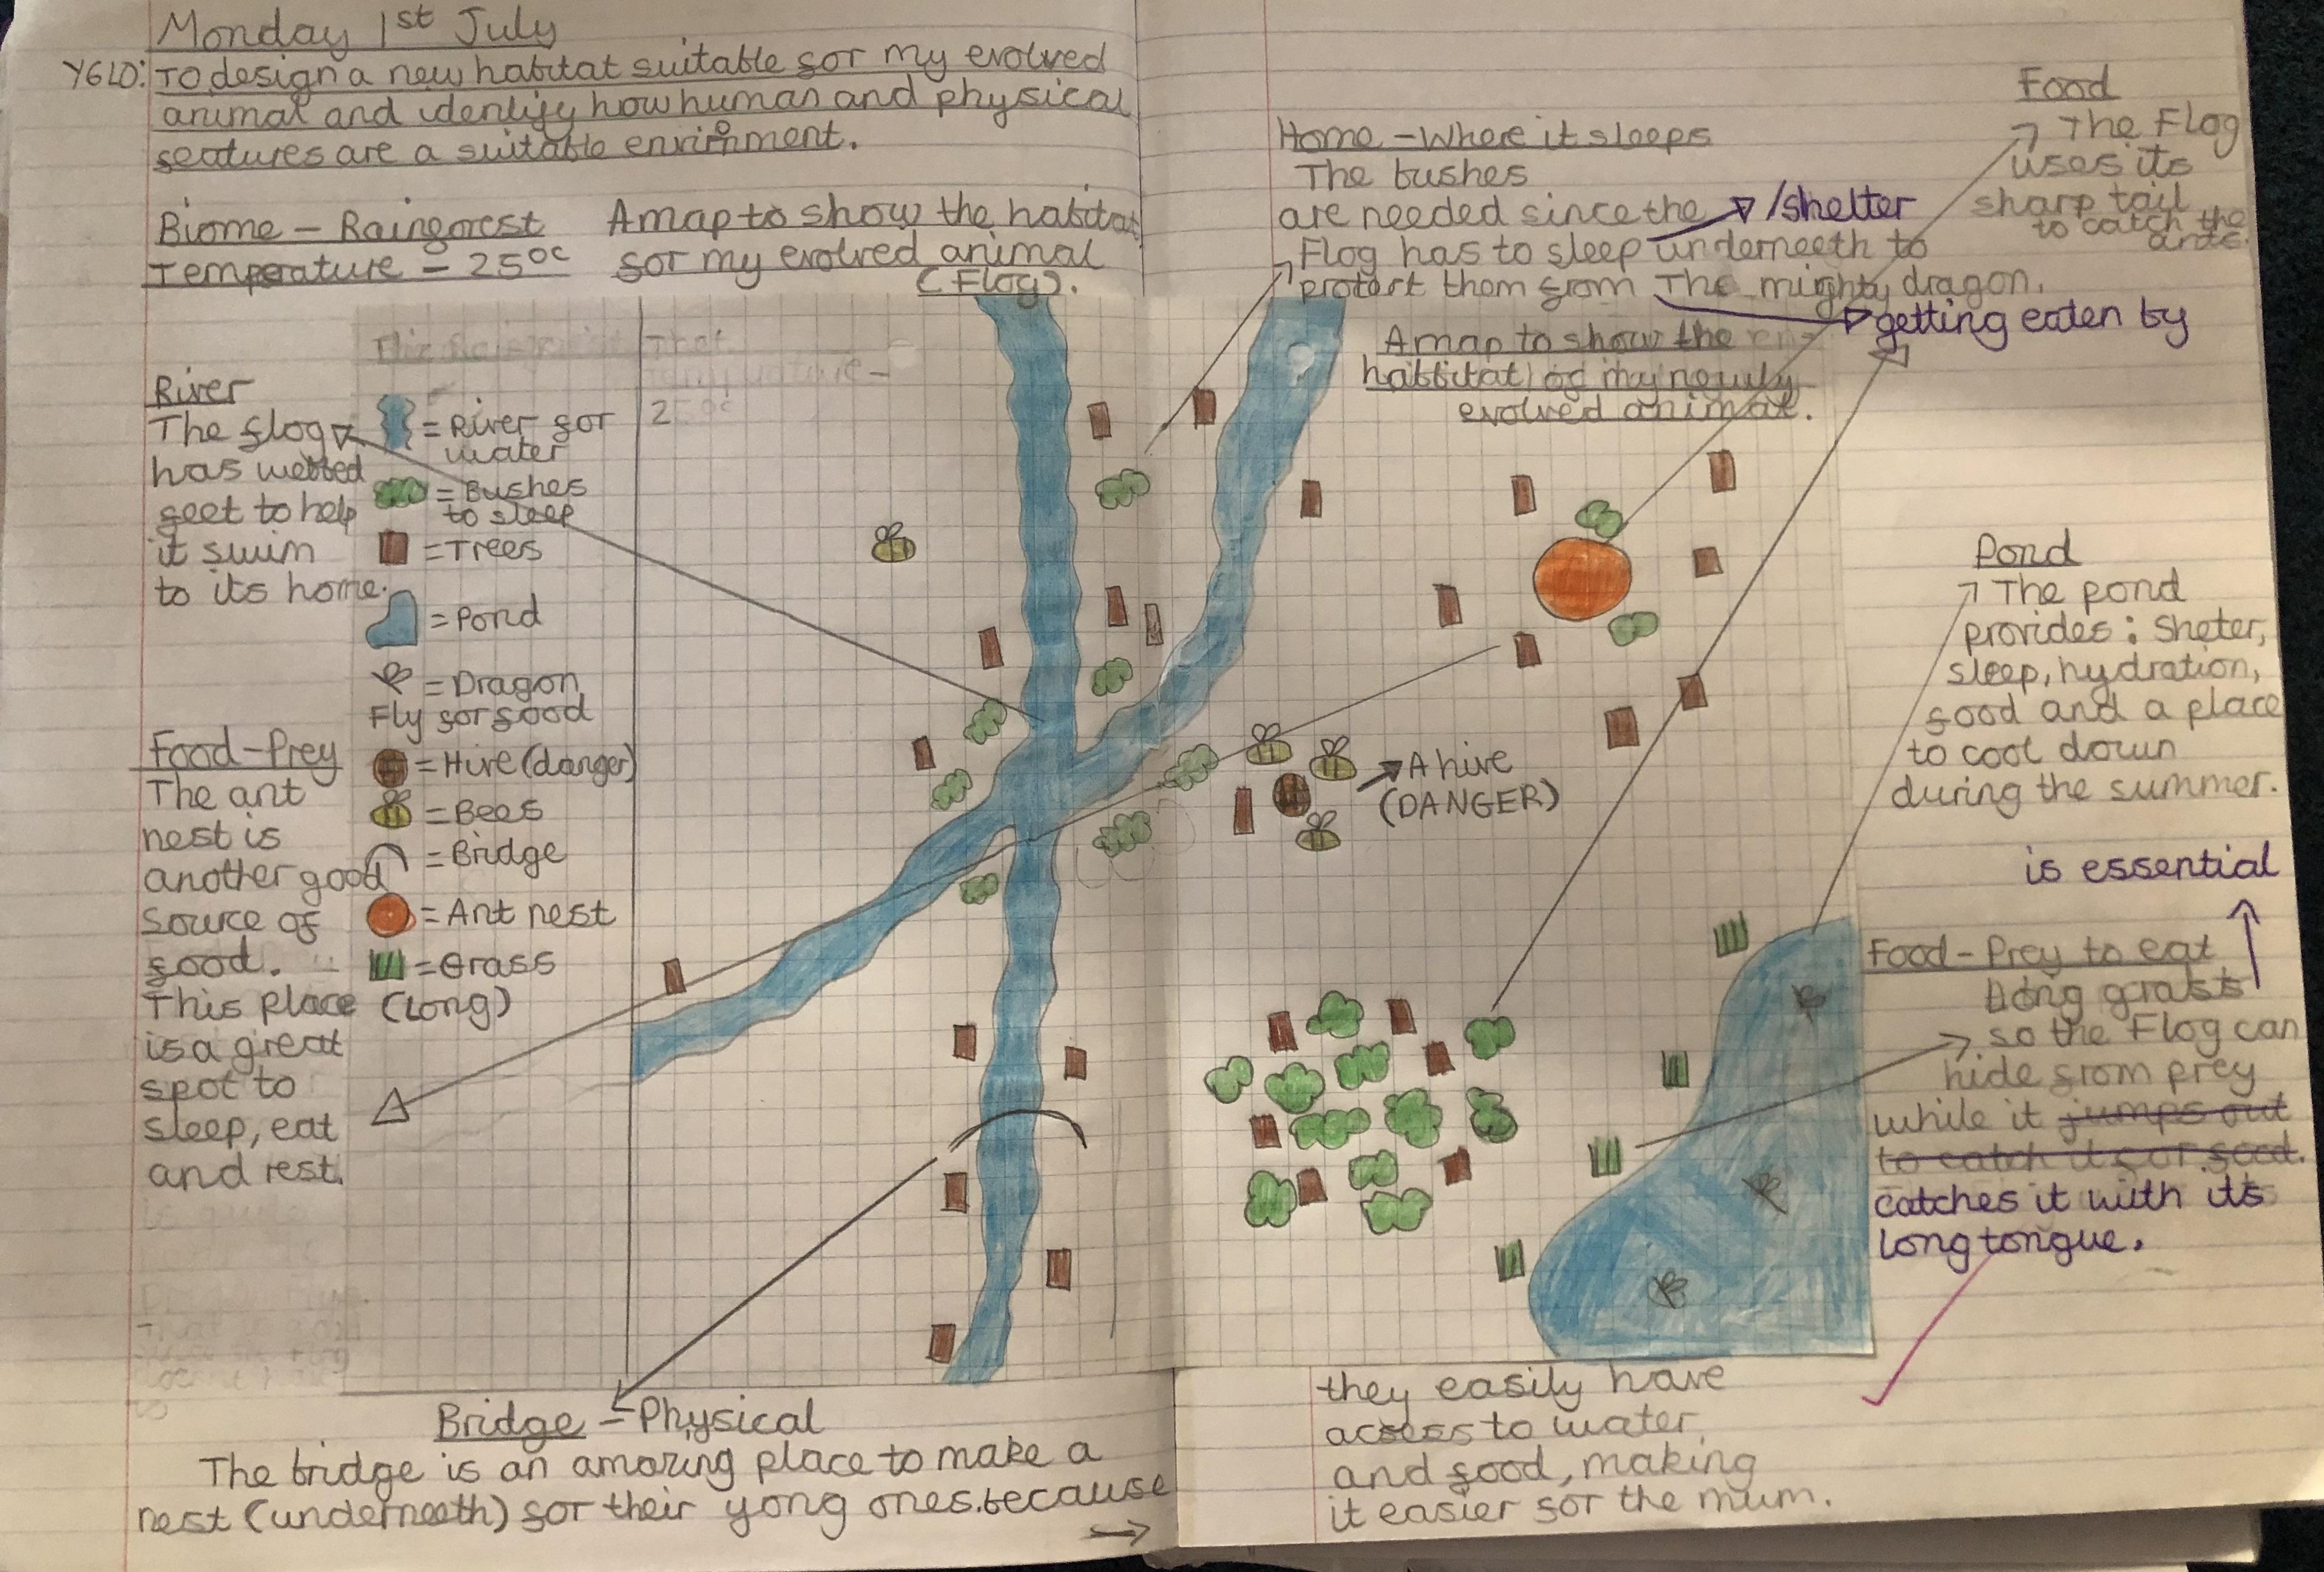 Monday 1st July
Y6 LO: To design a new habitat suitable for my evolved
animal and identify how human and physical
features are a suitable envirnment.
Biome - Rainforest
Temperature - 25°c
A map to show the habitat
for my evolved animal
(Flog).
River
The flog
has webbed
feet to help
it swim
to its home.
Food-Prey
The ant
nest is
another good
source of
food.
This place
is a great
spot to
sleep, eat
and rest.
= River for
water
= Bushes
to sleep
= Trees
= Pond
= Dragon
Fly for food
= Hive (danger)
= Bees
= Bridge
= Ant nest
= Grass
(Long)
That
25°c
Bridge - Physical
The bridge is an amazing place to make a
nest (underneeth) for their yong ones.because
Home - Where it sleeps
The bushes
are needed since the /shelter
Flog has to sleep underneeth to
protect them from The mighty dragon.
getting eaten by
A map to show the
habbitat of my newly
evolved animal.
Food
The Flog
uses its
sharp tail
to catch the
ants.
A hive
(DANGER)
Pond
The pond
provides: Sheter,
sleep, hydration,
food and a place
to cool down
during the summer.
is essential
Food - Prey to eat
Long grass
so the Flog can
hide from prey
while it jumps out
to catch it for food.
catches it with its
long tongue.
they easily have
access to water
and food, making
it easier for the mum.